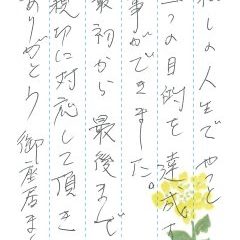 私しの人生でやっと
一つの目的を達成す
事ができました。
最初から最後まで
親切に対応して頂き
ありがとう御座居ま